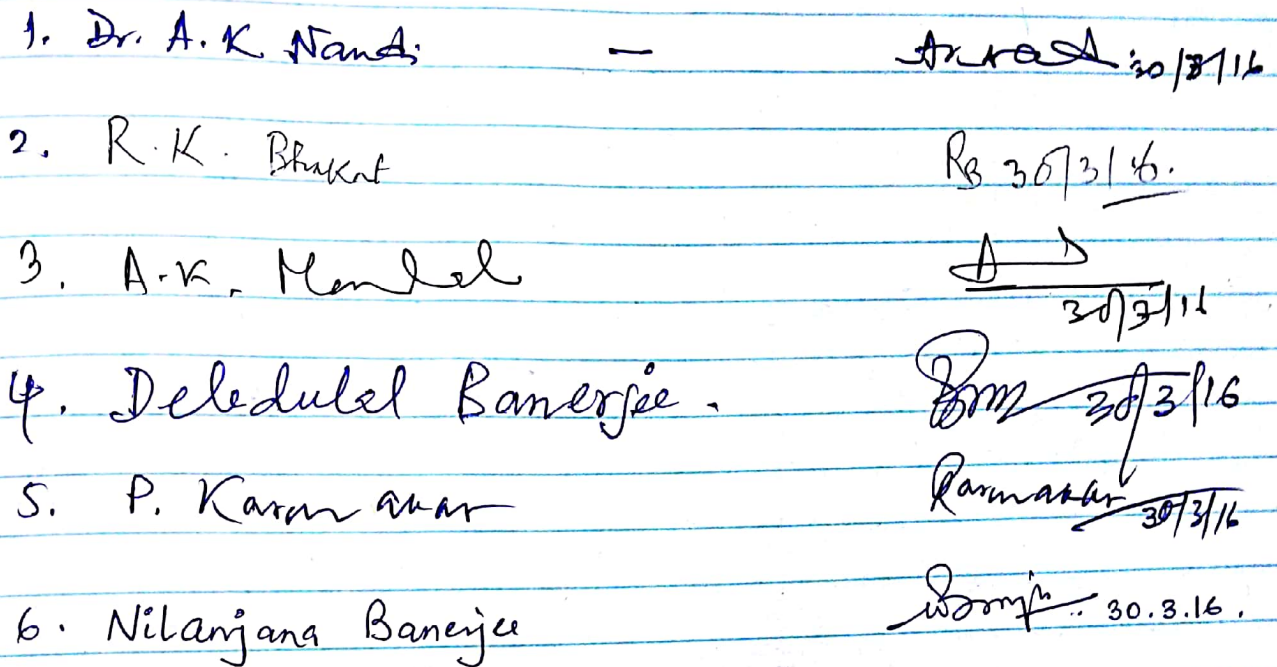 1. Dr. A. K Nandi - 30/3/16
2. R. K. Bhakat RB 30/3/16.
3. A. K. Mondal 30/3/16
4. Deledulel Banerjee. 30/3/16
5. P. Karmakar Karmakar 30/3/16
6. Nilanjana Banerjee 30.3.16.